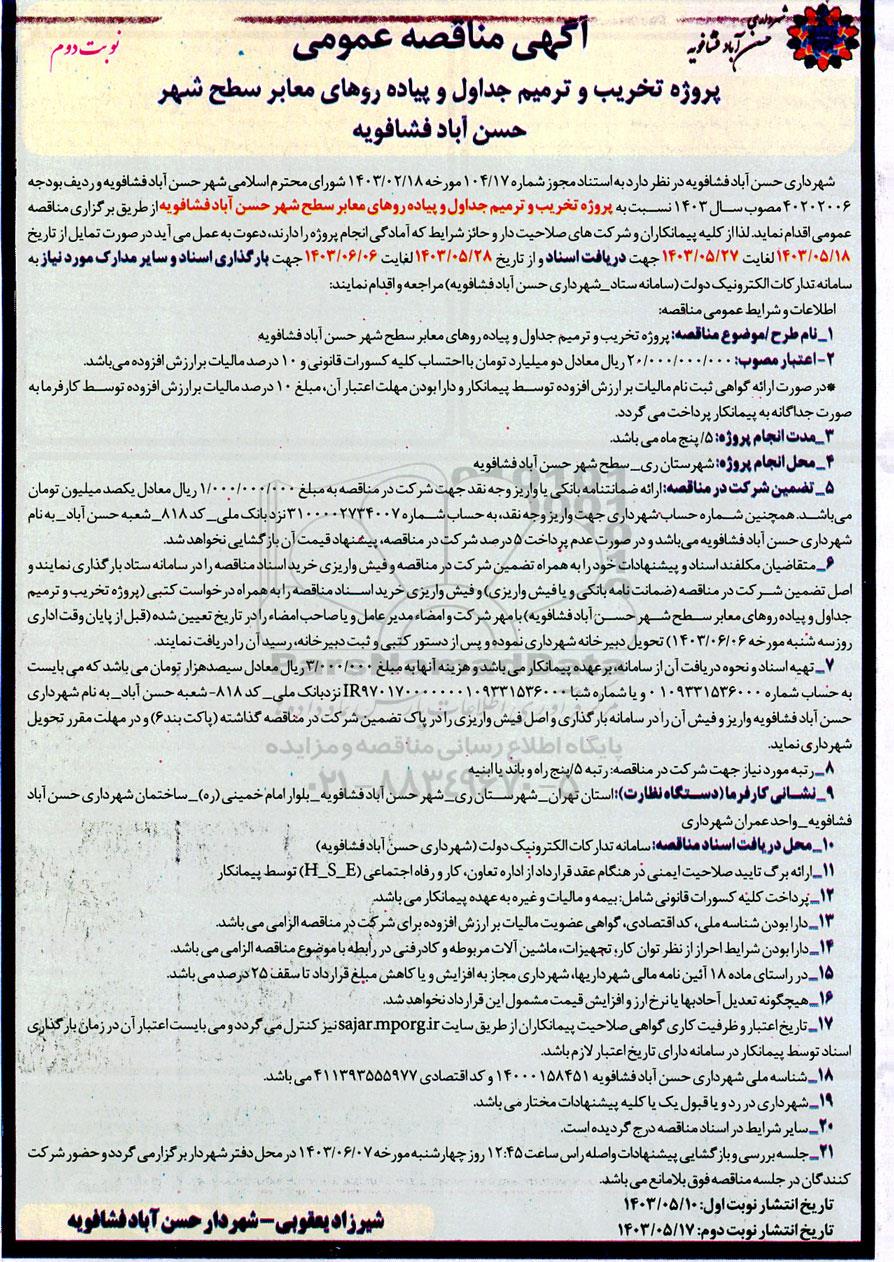 شهرداری
حسن آباد فشافویه
نوبت دوم
آگهی مناقصه عمومی
پروژه تخریب و ترمیم جداول و پیاده روهای معابر سطح شهر
حسن آباد فشافویه
شهرداری حسن آباد فشافویه در نظر دارد به استناد مجوز شماره ۱۰۴/۱۷ مورخه ۱۴۰۳/۰۲/۱۸ شورای محترم اسلامی شهر حسن آباد فشافویه و ردیف بودجه
۴۰۲۰۲۰۰۶ مصوب سال ۱۴۰۳ نسبت به پروژه تخریب و ترمیم جداول و پیاده روهای معابر سطح شهر حسن آباد فشافویه از طریق برگزاری مناقصه
عمومی اقدام نماید. لذا از کلیه پیمانکاران و شرکت های صلاحیت دار و حائز شرایط که آمادگی انجام پروژه را دارند، دعوت به عمل می آید در صورت تمایل از تاریخ
۱۴۰۳/۰۵/۱۸ لغایت ۱۴۰۳/۰۵/۲۷ جهت دریافت اسناد و از تاریخ ۱۴۰۳/۰۵/۲۸ لغایت ۱۴۰۳/۰۶/۰۶ جهت بارگذاری اسناد و سایر مدارک مورد نیاز به
سامانه تدارکات الکترونیک دولت (سامانه ستاد_شهرداری حسن آباد فشافویه) مراجعه و اقدام نمایند:
اطلاعات و شرایط عمومی مناقصه:
۱_نام طرح /موضوع مناقصه: پروژه تخریب و ترمیم جداول و پیاده روهای معابر سطح شهر حسن آباد فشافویه
۲- اعتبار مصوب: ۲۰/۰۰۰/۰۰۰/۰۰۰ ریال معادل دو میلیارد تومان با احتساب کلیه کسورات قانونی و ۱۰ درصد مالیات بر ارزش افزوده می‌باشد.
*در صورت ارائه گواهی ثبت نام مالیات بر ارزش افزوده توسط پیمانکار و دارا بودن مهلت اعتبار آن، مبلغ ۱۰ درصد مالیات بر ارزش افزوده توسط کارفرما به
صورت جداگانه به پیمانکار پرداخت می گردد.
۳_مدت انجام پروژه: ۵/ پنج ماه می باشد.
۴_ محل انجام پروژه: شهرستان ری_سطح شهر حسن آباد فشافویه
۵_ تضمین شرکت در مناقصه: ارائه ضمانتنامه بانکی یا واریز وجه نقد جهت شرکت در مناقصه به مبلغ ۱/۰۰۰/۰۰۰/۰۰۰ ریال معادل یکصد میلیون تومان
می‌باشد. همچنین شماره حساب شهرداری جهت واریز وجه نقد، به حساب شماره ۳۱۰۰۰۰۲۷۳۴۰۰۷ نزد بانک ملی_ کد ۸۱۸_شعبه حسن آباد_به نام
شهرداری حسن آباد فشافویه می‌باشد و در صورت عدم پرداخت ۵ درصد شرکت در مناقصه، پیشنهاد قیمت آن بازگشایی نخواهد شد.
۶_متقاضیان مکلفند اسناد و پیشنهادات خود را به همراه تضمین شرکت در مناقصه و فیش واریزی خرید اسناد مناقصه را در سامانه ستاد بارگذاری نمایند و
اصل تضمین شرکت در مناقصه (ضمانت نامه بانکی و یا فیش واریزی) و فیش واریزی خرید اسناد مناقصه را به همراه درخواست کتبی (پروژه تخریب و ترمیم
جداول و پیاده روهای معابر سطح شهر حسن آباد فشافویه) با مهر شرکت و امضاء مدیر عامل و یا صاحب امضاء را در تاریخ تعیین شده (قبل از پایان وقت اداری
روز سه شنبه مورخه ۱۴۰۳/۰۶/۰۶) تحویل دبیرخانه شهرداری نموده و پس از دستور کتبی و ثبت دبیرخانه، رسید آن را دریافت نمایند.
۷_ تهیه اسناد و نحوه دریافت آن از سامانه، بر عهده پیمانکار می باشد و هزینه آنها به مبلغ ۳/۰۰۰/۰۰۰ ریال معادل سیصد هزار تومان می باشد که می بایست
به حساب شماره ۰۱۰۹۳۳۱۵۳۶۰۰۰ و یا شماره شبا IR۹۷۰۱۷۰۰۰۰۰۰۰۱۰۹۳۳۱۵۳۶۰۰۰ نزد بانک ملی_ کد ۸۱۸- شعبه حسن آباد_ به نام شهرداری
حسن آباد فشافویه واریز و فیش آن را در سامانه بارگذاری و اصل فیش واریزی را در پاک تضمین شرکت در مناقصه گذاشته (پاکت بند۶) و در مهلت مقرر تحویل
شهرداری نماید.
۸_ رتبه مورد نیاز جهت شرکت در مناقصه: رتبه ۵/پنج راه و باند یا ابنیه
۹_ نشانی کارفرما (دستگاه نظارت): استان تهران_شهرستان ری_شهر حسن آباد فشافویه_بلوار امام خمینی (ره)_ساختمان شهرداری حسن آباد
فشافویه_واحد عمران شهرداری
۱۰_محل دریافت اسناد مناقصه: سامانه تدارکات الکترونیک دولت (شهرداری حسن آباد فشافویه)
۱۱_ارائه برگ تایید صلاحیت ایمنی در هنگام عقد قرارداد از اداره تعاون، کار و رفاه اجتماعی (H_S_E) توسط پیمانکار
۱۲_پرداخت کلیه کسورات قانونی شامل: بیمه و مالیات و غیره به عهده پیمانکار می باشد.
۱۳_دارا بودن شناسه ملی، کد اقتصادی، گواهی عضویت مالیات بر ارزش افزوده برای شرکت در مناقصه الزامی می باشد.
۱۴_دارا بودن شرایط احراز از نظر توان کار؛ تجهیزات، ماشین آلات مربوطه و کادر فنی در رابطه با موضوع مناقصه الزامی می باشد.
۱۵_در راستای ماده ۱۸ آئین نامه مالی شهرداریها، شهرداری مجاز به افزایش و یا کاهش مبلغ قرارداد تا سقف ۲۵ درصد می باشد.
۱۶_هیچگونه تعدیل آحادبها یا نرخ ارز و افزایش قیمت مشمول این قرارداد نخواهد شد.
۱۷_تاریخ اعتبار و ظرفیت کاری گواهی صلاحیت پیمانکاران از طریق سایت sajar.mporg.ir نیز کنترل می گردد و می بایست اعتبار آن در زمان بارگذاری
اسناد توسط پیمانکار در سامانه دارای تاریخ اعتبار لازم باشد.
۱۸_شناسه ملی شهرداری حسن آباد فشافویه ۱۴۰۰۰۱۵۸۴۵۱ و کد اقتصادی ۴۱۱۳۹۳۵۵۵۹۷۷ می باشد.
۱۹_شهرداری در رد و یا قبول یک یا کلیه پیشنهادات مختار می باشد.
۲۰_سایر شرایط در اسناد مناقصه درج گردیده است.
۲۱_جلسه بررسی و بازگشایی پیشنهادات واصله راس ساعت ۱۲:۴۵ روز چهارشنبه مورخه ۱۴۰۳/۰۶/۰۷ در محل دفتر شهردار برگزار می گردد و حضور شرکت
کنندگان در جلسه مناقصه فوق بلامانع می باشد.
تاریخ انتشار نوبت اول: ۱۴۰۳/۰۵/۱۰
تاریخ انتشار نوبت دوم: ۱۴۰۳/۰۵/۱۷
شیرزاد یعقوبی – شهردار حسن آباد فشافویه
ParsNamadData
پایگاه اطلاع رسانی مناقصه و مزایده
۰۲۱-۸۸۳۴۹۶۷۰-۵